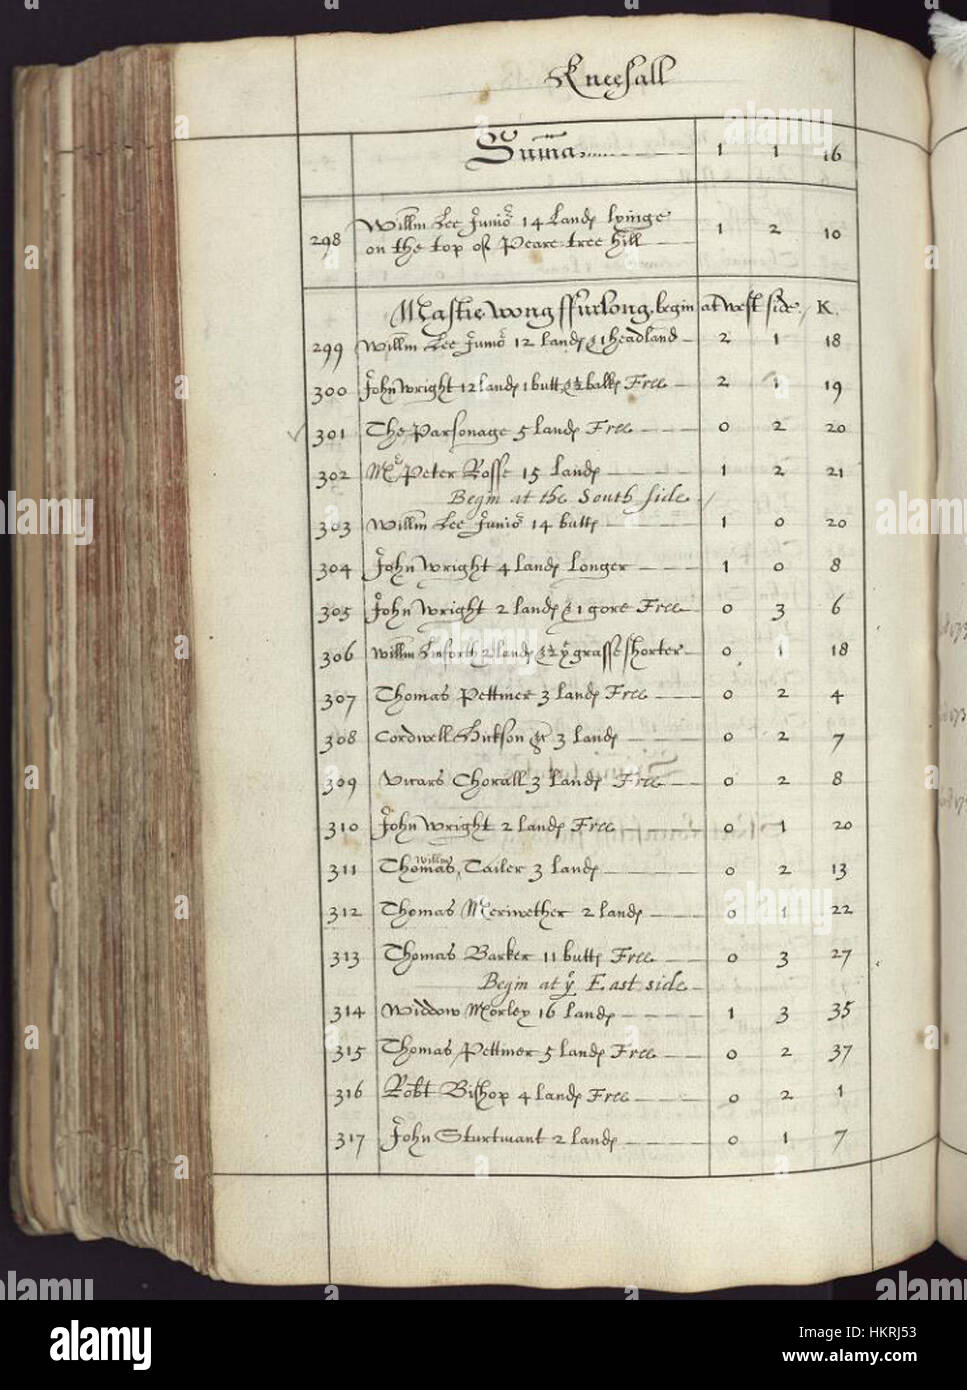 Kneesall
Summa 1 1 16
298 Willm Lee Junior 14 Lands lyinge
on the top of Peare tree hill 1 2 10
Mastie wong ffurlong begin at west side. K.
299 Willm Lee Junior 12 lands & 1 headland 2 1 18
300 John Wright 12 lands 1 butt & ½ balk Free 2 1 19
301 The Parsonage 5 lands Free 0 2 20
302 Mr Peter Rosse 15 lands 1 2 21
Begin at the South side.
303 Willm Lee Junior 14 butts 1 0 20
304 John Wright 4 lands Longer 1 0 8
305 John Wright 2 lands & 1 gore Free 0 3 6
306 Willm Linforth 2 lands & 2 ye grasse shorter 0 1 18
307 Thomas Pettiner 3 lands Free 0 2 4
308 Cordwell Hickson & 3 lands 0 2 7
309 Vicars Chorall 3 lands Free 0 2 8
310 John Wright 2 lands Free 0 1 20
311 Thomas Willm Tailer 3 lands 0 2 13
312 Thomas Meriwether 2 lands 0 1 22
313 Thomas Barker 11 butts Free 0 3 27
Begin at ye East side
314 Widdow Morley 16 lands 1 3 35
315 Thomas Pettiner 5 lands Free 0 2 37
316 Robt Bishop 4 lands Free 0 2 1
317 John Sturtivant 2 lands 0 1 7
alamy
Image ID: HKRJ53
www.alamy.com